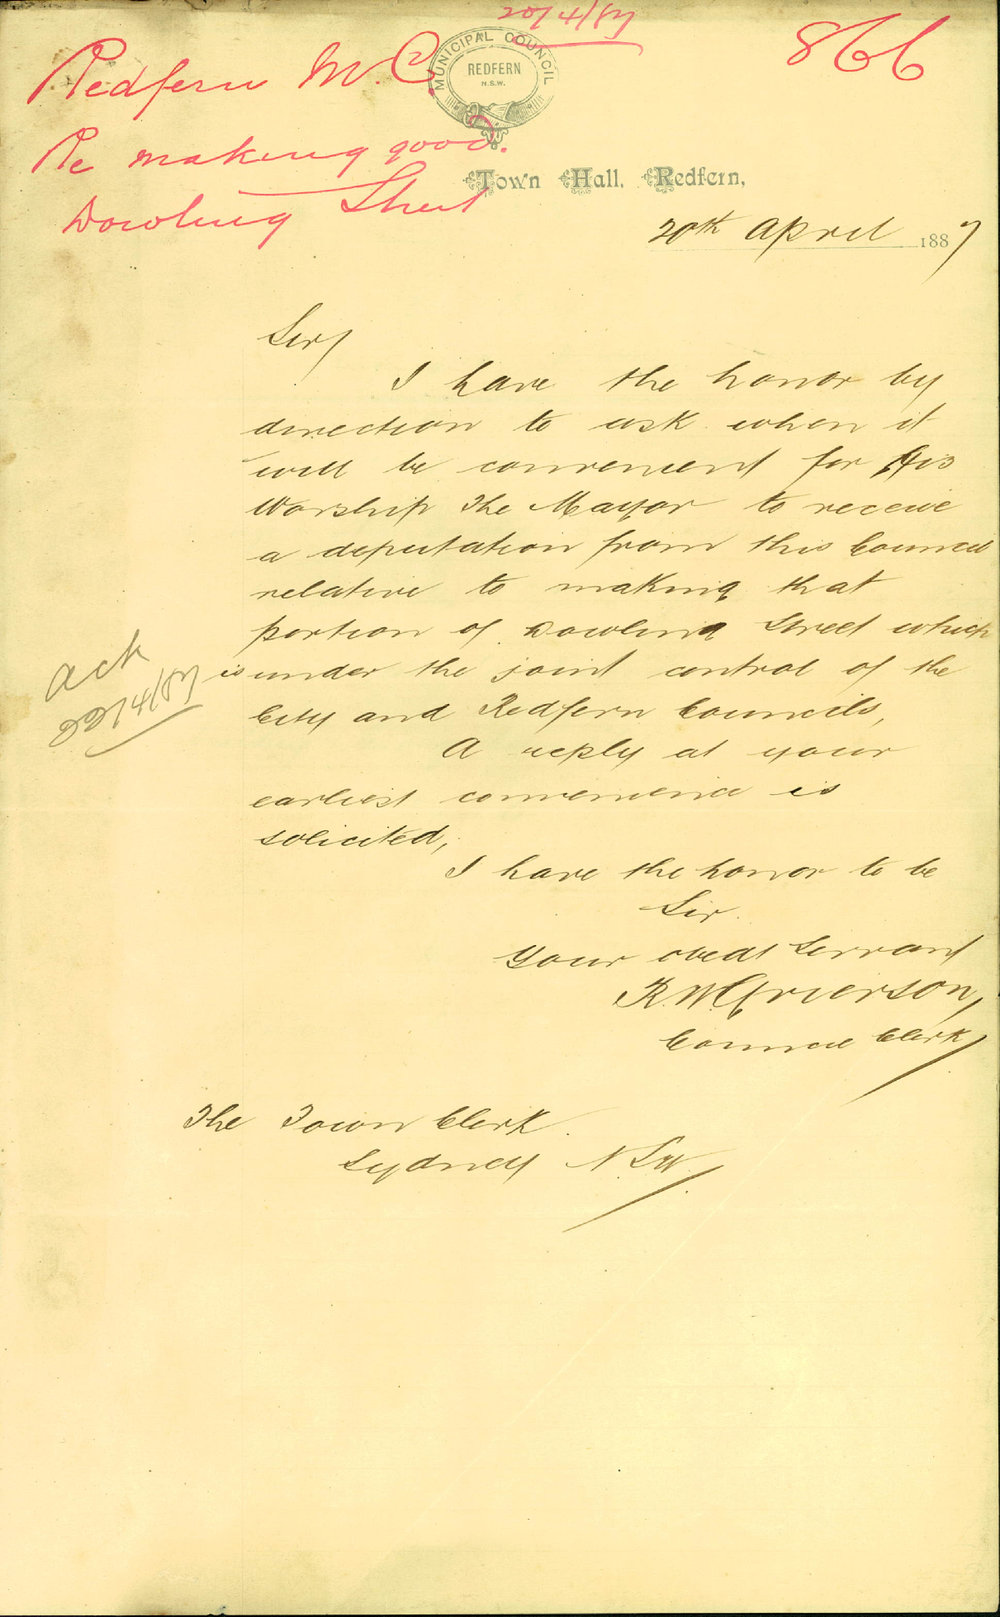 20/4/87
866
Redfern M.C.
Re making good.
Dowling Street
MUNICIPAL COUNCIL
REDFERN
N.S.W.
Town Hall, Redfern,
20th April 1887
Sir/
I have the honor by
direction to ask when it
will be convenient for His
Worship The Mayor to receive
a deputation from this Council
relative to making that
portion of Dowling Street which
is under the joint control of the
City and Redfern Councils,
A reply at your
earliest convenience is
solicited,
I have the honor to be
Sir.
Your obedt Servant
R.W. Grierson,
Council Clerk
Ack
22/4/87
The Town Clerk.
Sydney N.S.W.